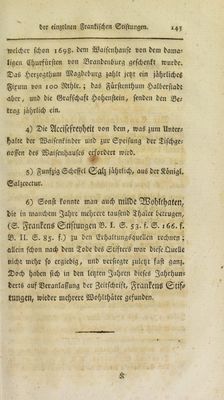 der einzelnen Frankischen Stiftungen. 145
welcher schon 1698. dem Waisenhause von dem dama-
ligen Churfürsten von Brandenburg geschenkt wurde.
Das Herzogthum Magdeburg zahlt jetzt ein jährliches
Fixum von 100 Rthlr. ; das Fürstenthum Halberstadt
aber, und die Grafschaft Hohenstein, senden den Be-
trag jährlich ein.
4) Die Accisefreyheit von dem, was zum Unter-
halte der Waisenkinder und zur Speisung der Tischge-
nossen des Waisenhauses erfordert wird.
5) Funfzig Scheffel Salz jährlich, aus der Königl.
Salzcoctur.
6) Sonst konnte man auch milde Wohlthaten,
die in manchem Jahre mehrere tausend Thaler betrugen,
(S. Frankens Stiftungen B. I. S. 53. f. S. 166. f.
B. II. S. 85. f.) zu den Erhaltungsquellen rechnen;
allein schon nach dem Tode des Stifters war diese Quelle
nicht mehr so ergiebig, und versiegte zuletzt fast ganz.
Doch haben sich in den letzten Jahren dieses Jahrhun-
derts auf Veranlassung der Zeitschrift, Frankens Stif-
tungen, wieder mehrere Wohlthäter gefunden.